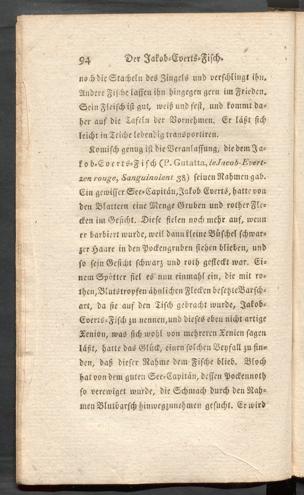 94 Der Jakob-Everts-Fisch.
noch die Stacheln des Zingels und verschlingt ihn.
Andere Fische lassen ihn hingegen gern im Frieden.
Sein Fleisch ist gut, weiß und fest, und kommt da-
her auf die Tafeln der Vornehmen. Er läßt sich
leicht in Teiche lebendig transportiren.
Komisch genug ist die Veranlassung, die dem Ja-
kob-Everts-Fisch (P. Gutatta, le Jacob-Evert-
zen rouge, Sanguinolent 38) seinen Nahmen gab.
Ein gewisser See-Capitán, Jakob Everts, hatte von
den Blattern eine Menge Gruben und rother Fle-
cken im Gesicht. Diese fielen noch mehr auf, wenn
er barbiert wurde, weil dann kleine Büschel schwar-
zer Haare in den Pockengruben stehen blieben, und
so sein Gesicht schwarz und roth gefleckt war. Ei-
nem Spötter fiel es nun einmahl ein, die mit ro-
then, Blutstropfen ähnlichen Flecken besetzte Barsch-
art, da sie auf den Tisch gebracht wurde, Jakob-
Everts-Fisch zu nennen, und dieses eben nicht artige
Xenion, was sich wohl von mehreren Xenien sagen
läßt, hatte das Glück, einen solchen Beyfall zu fin-
den, daß dieser Nahme dem Fische blieb. Bloch
hat von dem guten See-Capitán, dessen Pockennoth
so verewiget wurde, die Schmach durch den Nah-
men Blutbarsch hinwegzunehmen gesucht. Er wird